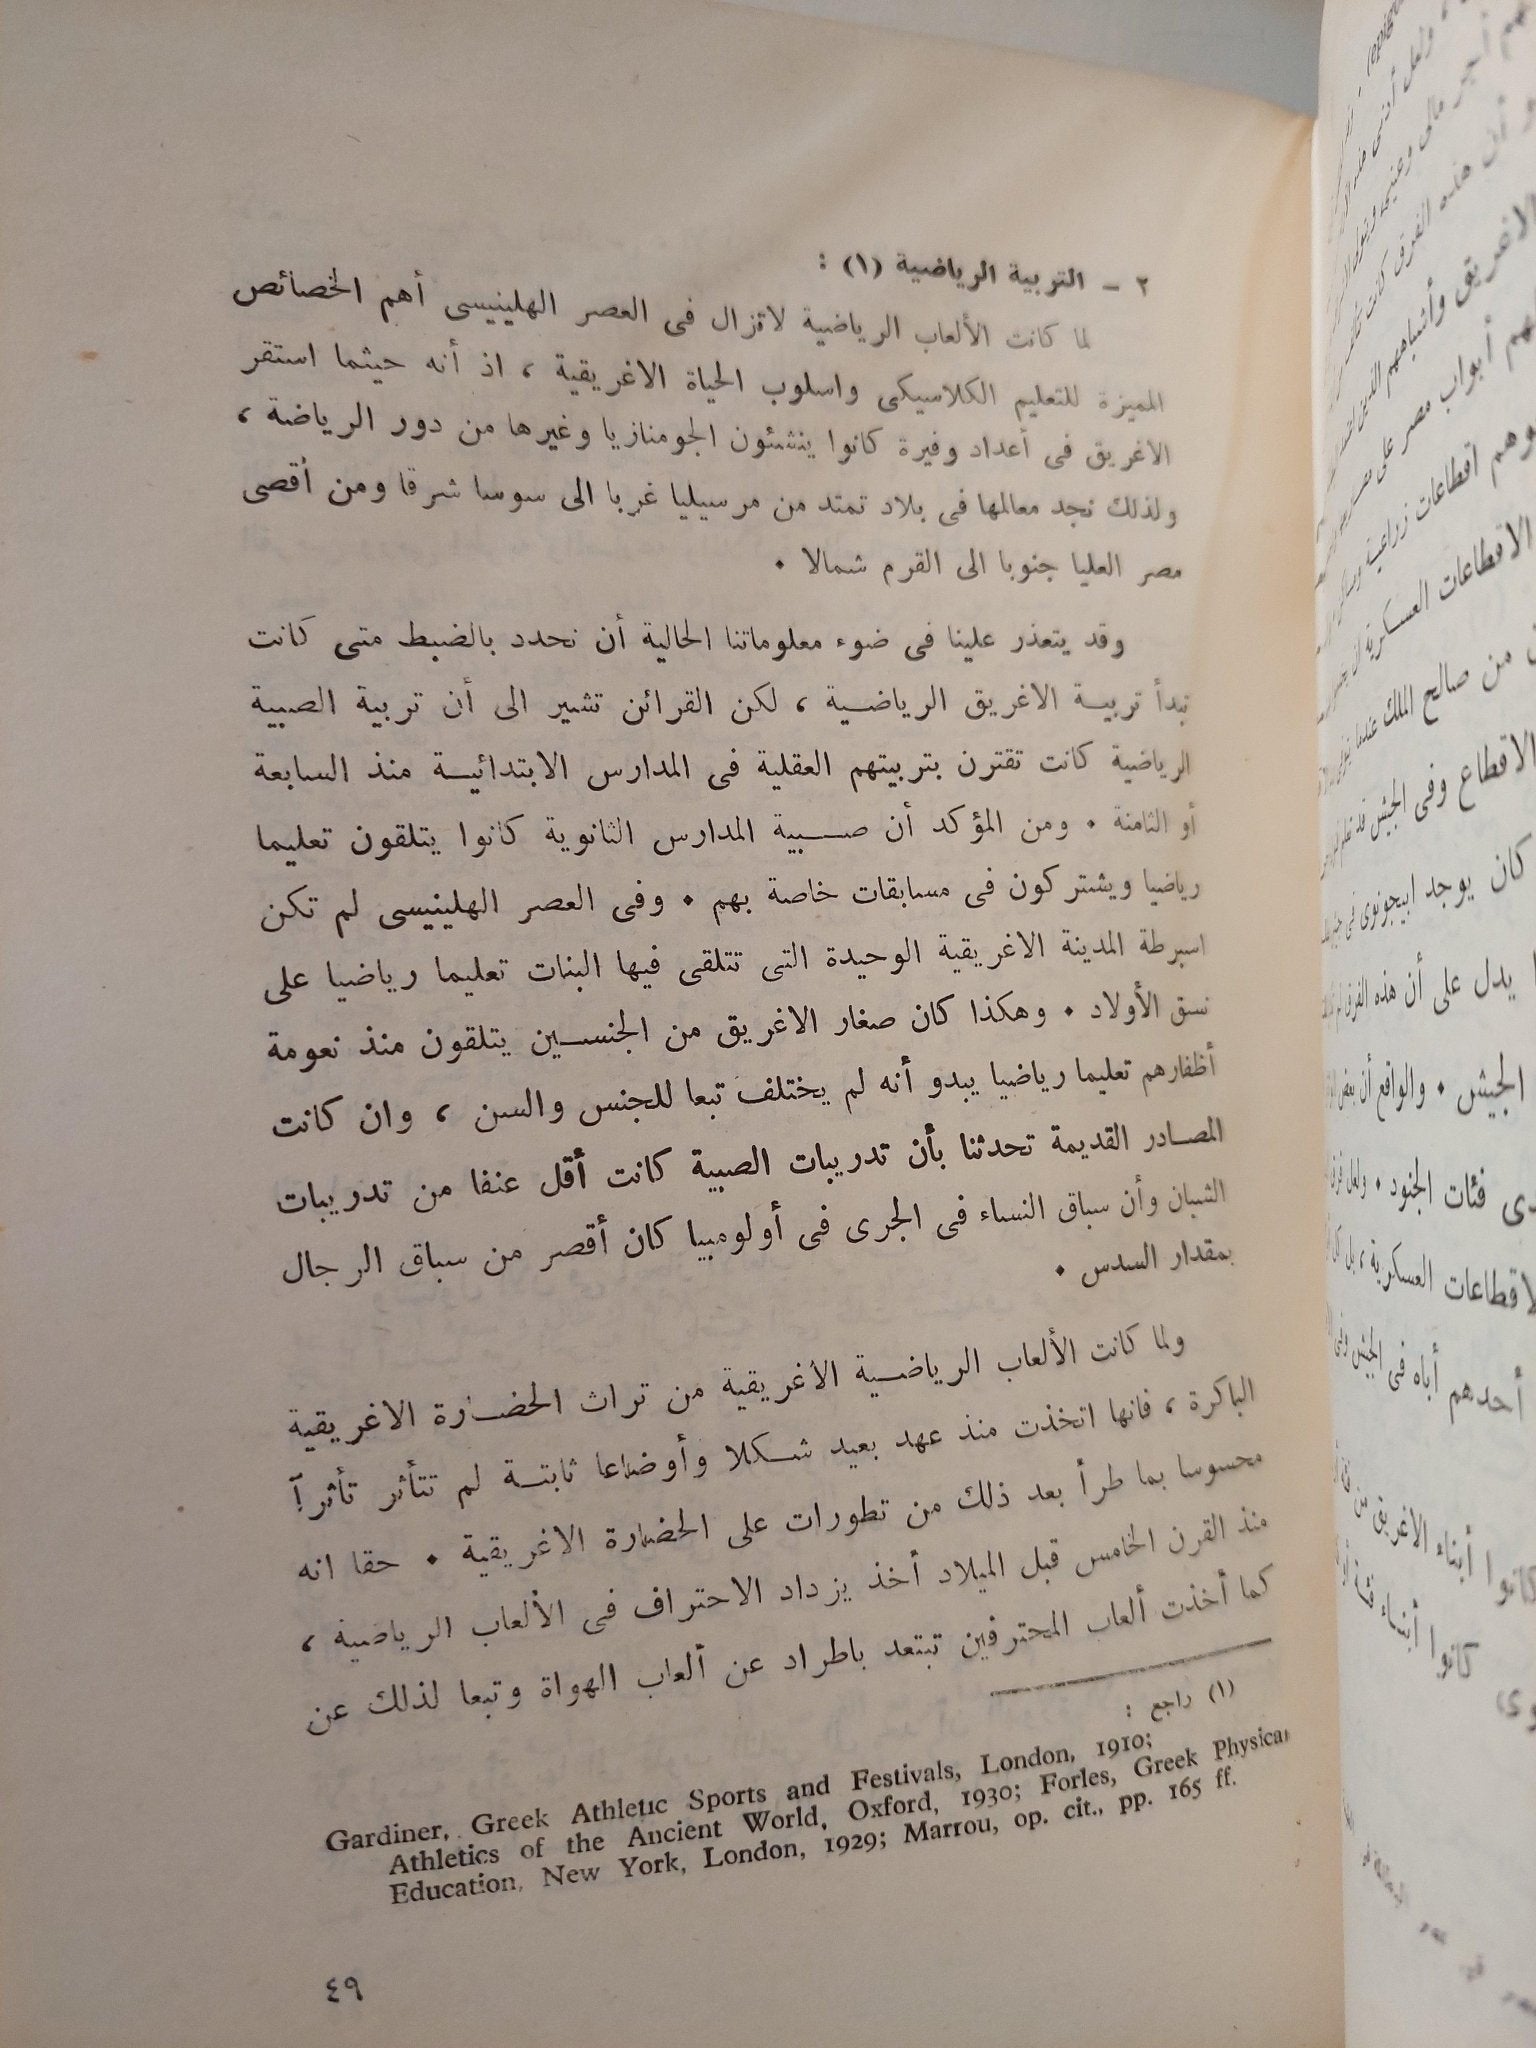 ٢ - التربية الرياضية (١) :
لما كانت الألعاب الرياضية لاتزال فى العصر الهلينيسى أهم الخصائص
المميزة للتعليم الكلاسيكى واسلوب الحياة الاغريقية ، اذ أنه حيثما استقر
الاغريق فى أعداد وفيرة كانوا ينشئون الجومنازيا وغيرها من دور الرياضة ،
ولذلك نجد معالمها فى بلاد تمتد من مرسيليا غربا الى سوسا شرقا ومن أقصى
مصر العليا جنوبا الى القرم شمالا ٠
وقد يتعذر علينا فى ضوء معلوماتنا الحالية أن نحدد بالضبط متى كانت
تبدأ تربية الاغريق الرياضية ، لكن القرائن تشير الى أن تربية الصبية
الرياضية كانت تقترن بتربيتهم العقلية فى المدارس الابتدائية منذ السابعة
أو الثامنة ٠ ومن المؤكد أن صبية المدارس الثانوية كانوا يتلقون تعليما
رياضيا ويشتركون فى مسابقات خاصة بهم ٠ وفى العصر الهلينيسى لم تكن
اسبرطة المدينة الاغريقية الوحيدة التى تتلقى فيها البنات تعليما رياضيا على
نسق الأولاد ٠ وهكذا كان صغار الاغريق من الجنسين يتلقون منذ نعومة
أظفارهم تعليما رياضيا يبدو أنه لم يختلف تبعا للجنس والسن ، وان كانت
المصادر القديمة تحدثنا بأن تدريبات الصبية كانت أقل عنفا من تدريبات
الشبان وأن سباق النساء فى الجرى فى أولومبيا كان أقصر من سباق الرجال
بمقدار السدس ٠
ولما كانت الألعاب الرياضية الاغريقية من تراث الحضارة الاغريقية
الباكرة ، فانها اتخذت منذ عهد بعيد شكلا وأوضاعا ثابتة لم تتأثر تأثرآ
محسوسا بما طرأ بعد ذلك من تطورات على الحضارة الاغريقية ٠ حقا انه
منذ القرن الخامس قبل الميلاد أخذ يزداد الاحتراف فى الألعاب الرياضية ،
كما أخذت ألعاب المحترفين تبتعد باطراد عن ألعاب الهواة وتبعا لذلك عن
(١) راجع :
Gardiner, Greek Athletic Sports and Festivals, London, 1910;
Athletics of the Ancient World, Oxford, 1930; Forles, Greek Physical
Education, New York, London, 1929; Marrou, op. cit., pp. 165 ff.
٤٩
الاغريق وأشباههم الذين
هم أبواب مصر على
وهم اقطاعات زراعية
الاقطاعات العسكرية
من صالح الملك عندما
الاقطاع وفى الجيش قد
كان يوجد ابيجونوى فى
يدل على أن هذه الفرق
الجيش ٠ والواقع أن بعض
فئات الجنود ٠ ولعل
لاقطاعات العسكرية ، بل
أحدهم أباه فى الجيش وفى
كانوا أبناء الاغريق من
كانوا أبناء